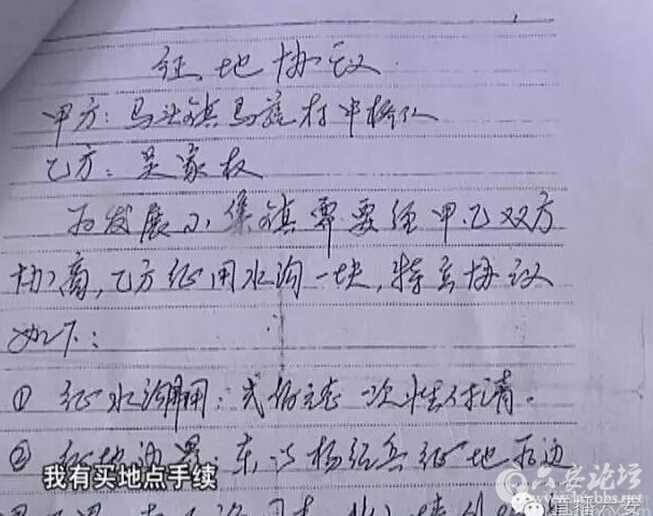 征地协议
甲方：马头镇马店村中桥队
乙方：吴家权
为发展小集镇需要经甲.乙双方
协商,乙方征用水沟一块,特立协议
如下：
① 征水沟费用：贰佰元 一次性付清。
② 征地 界：东以杨经兵征地为边
我有买地点手续
六安论坛
直播六安